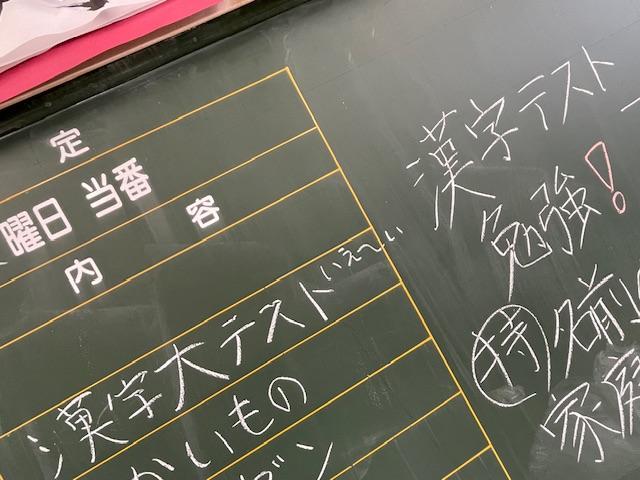 定
曜日 当番
内 容
漢字大テスト いえーい
かいもの
漢字テスト
勉強!
持 名前
家庭